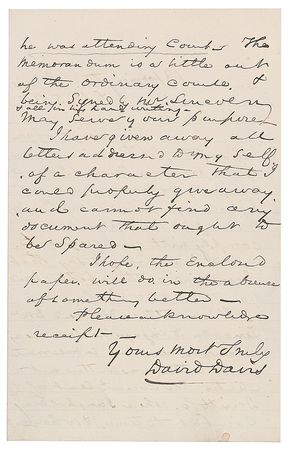 he was attending Court - The
memorandum is a little out
of the ordinary course, &
being signed by Mr. Lincoln,
& all in his hand writing -
may serve your purpose -
I have given away all
letters addressed to my self,
of a character that I
could properly give away
and cannot find any
document that ought to
be spared -
I hope, the enclosed
paper, will do, in the absence
of something better -
Please acknowledge
receipt -
Yours Most Truly
David Davis